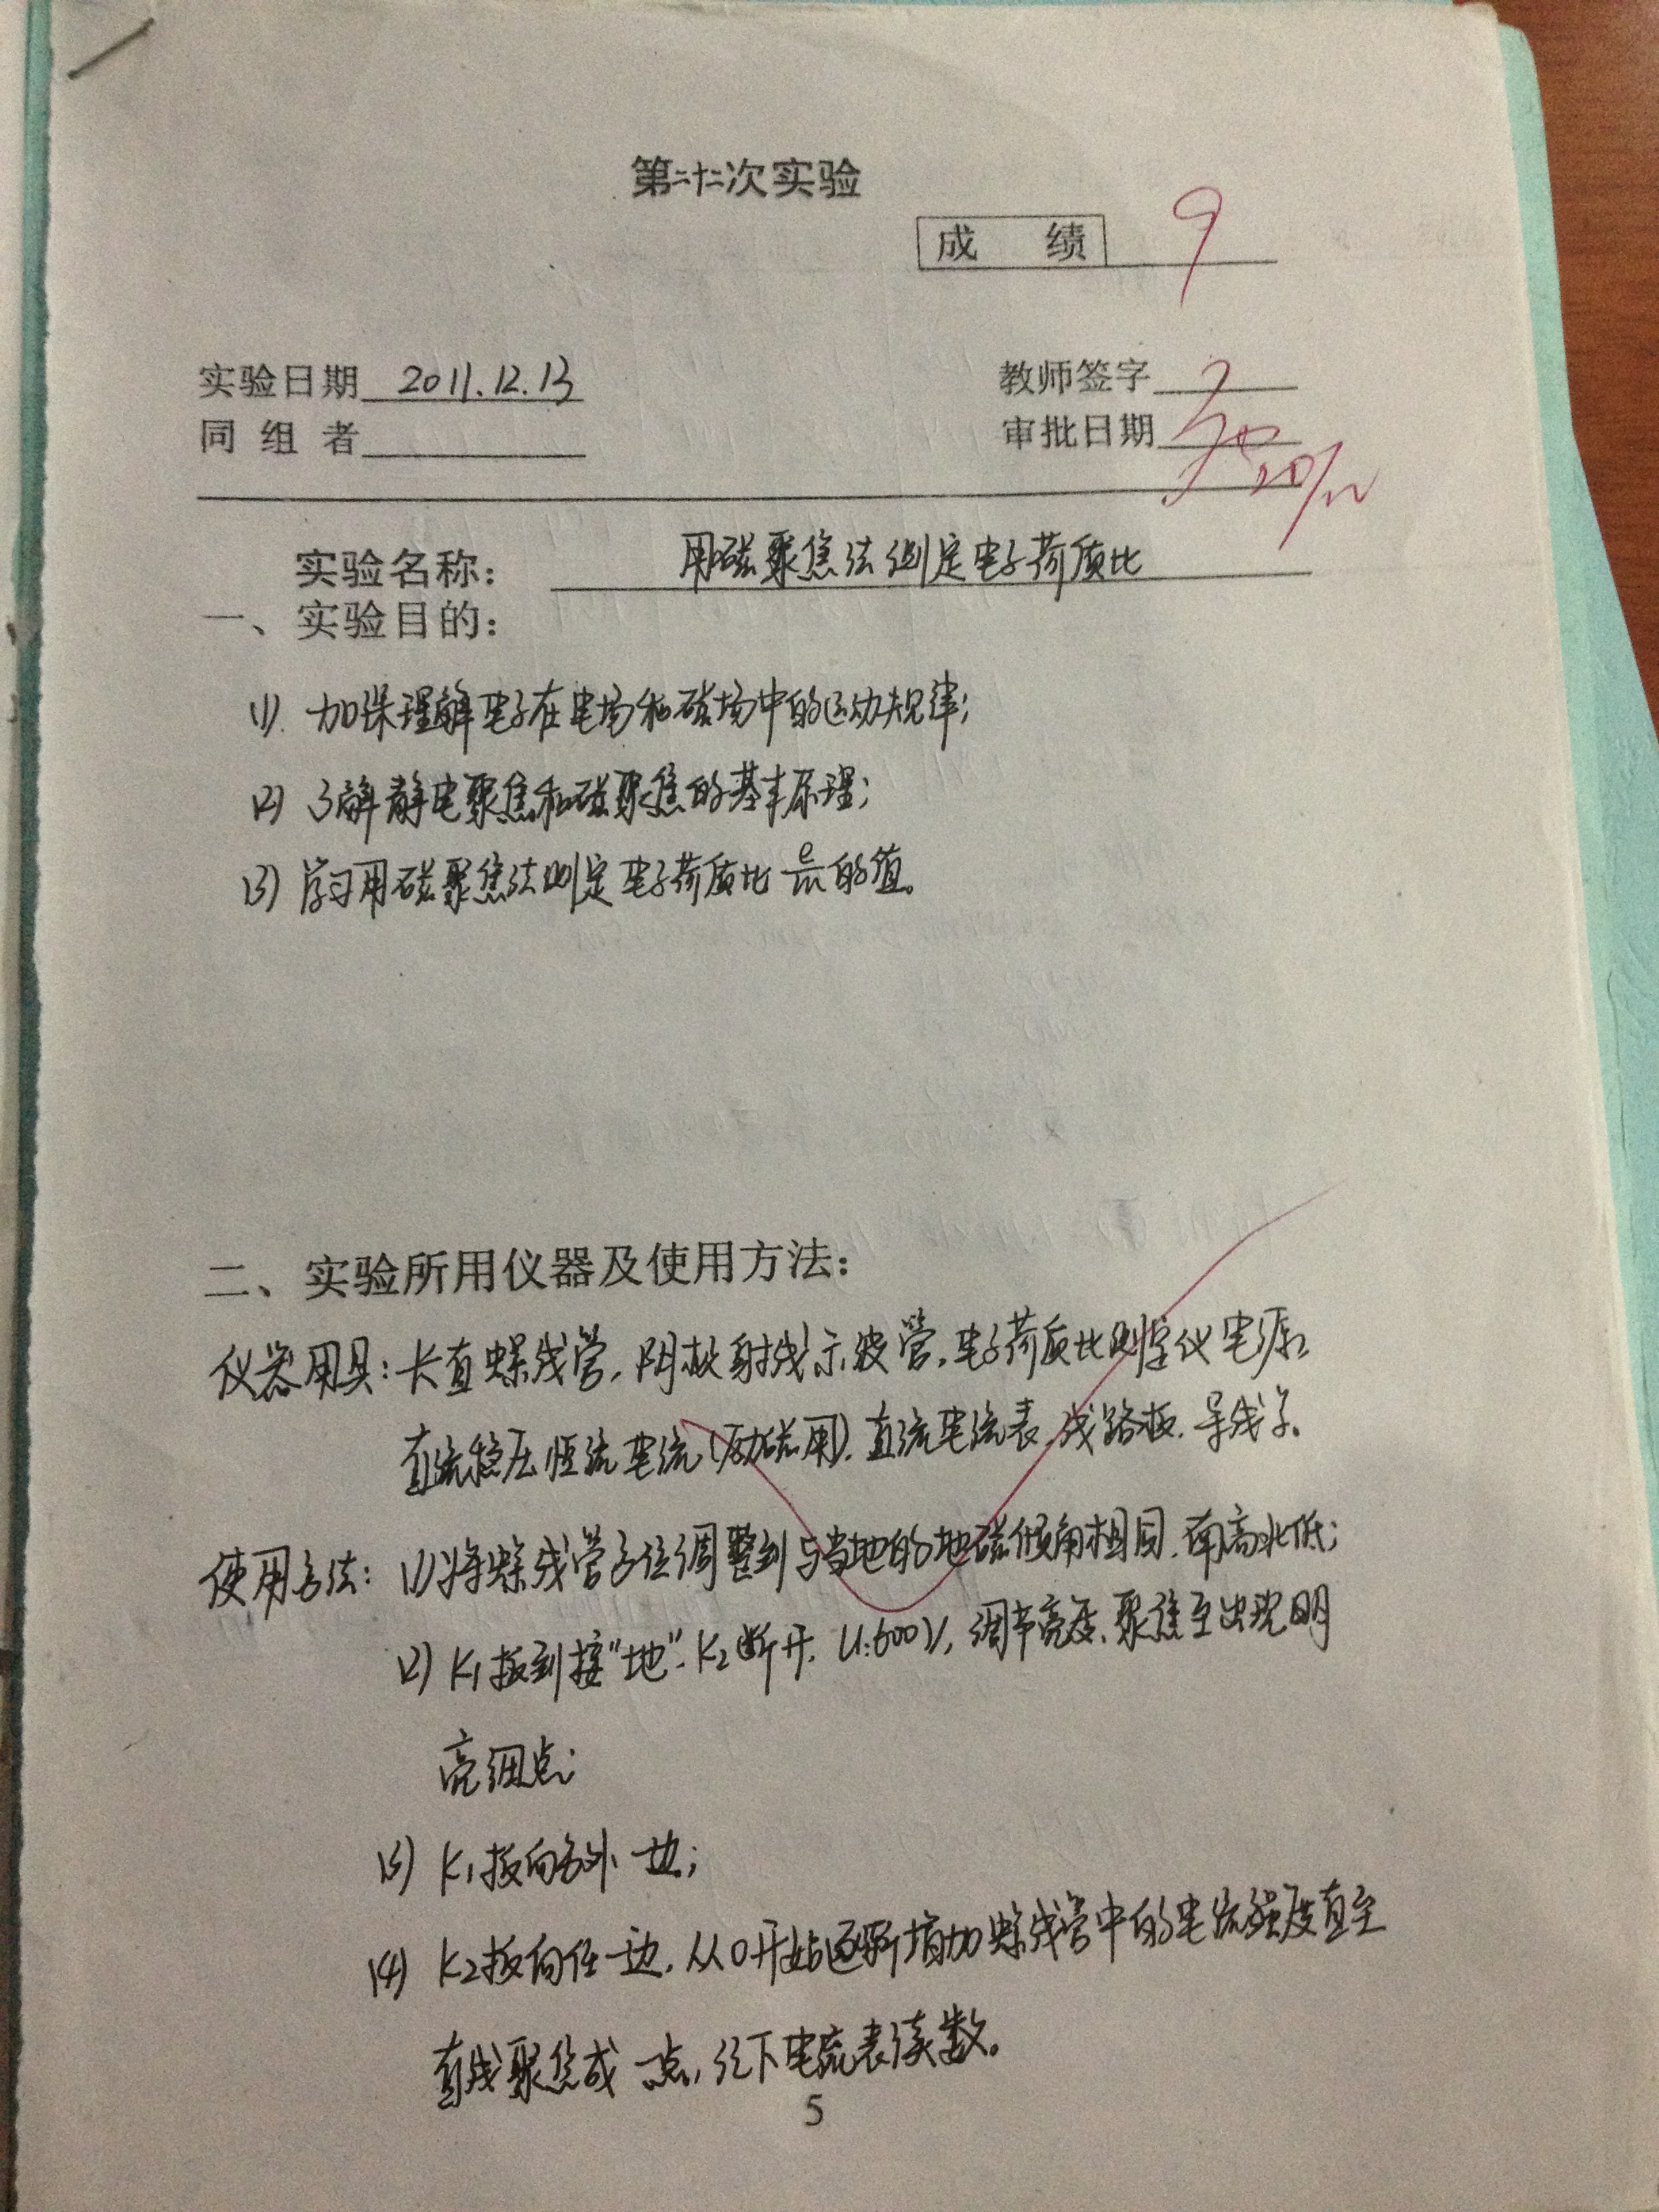 第二十二次实验
成 绩 9
实验日期 2011.12.13 教师签字
同 组 者 审批日期 20/12
实验名称： 用磁聚焦法测定电子荷质比
一、实验目的：
(1) 加深理解电子在电场和磁场中的运动规律；
(2) 了解静电聚焦和磁聚焦的基本原理；
(3) 学习用磁聚焦法测定电子荷质比 e/m 的值。
二、实验所用仪器及使用方法：
仪器用具：长直螺线管，阴极射线示波管，电子荷质比测定仪电源，
直流稳压恒流电流（励磁用），直流电流表，线路板，导线等。
使用方法：(1)将螺线管方位调整到与当地的地磁倾角相同，南高北低；
(2) K₁扳到接“地”，K₂断开，U:600V，调节亮度、聚焦至出现明
亮细点；
(3) K₁扳向另外一边；
(4) K₂扳向任一边，从0开始逐渐增加螺线管中的电流强度直至
直线聚焦成一点，记下电流表读数。
5